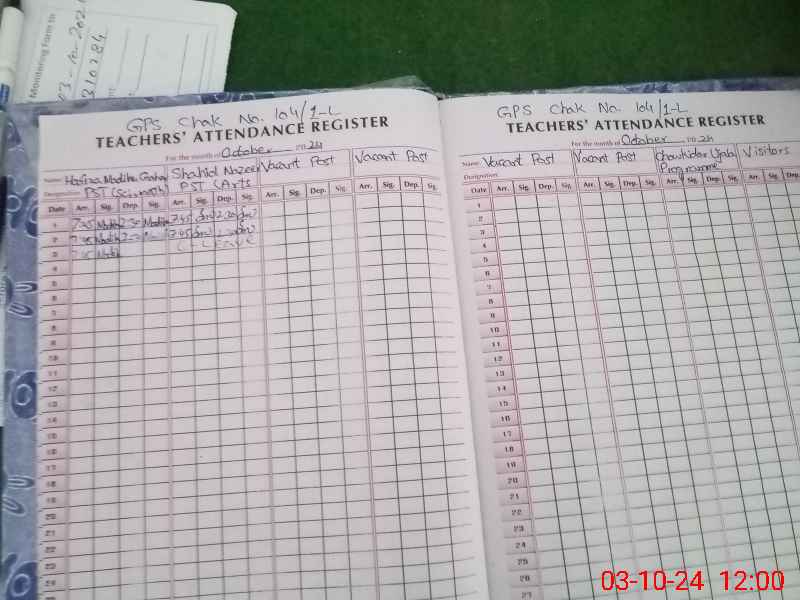 Monitoring Form to
03-10-202
310284
GPS Chak No. 104/1-L
TEACHERS' ATTENDANCE REGISTER
For the month of October 2024
Name Hafina Madiha Shahid Nazeer Vacant Post Vacant Post
Designation PST (Sci-math) PST (Arts
Date Arr. Sig. Dep. Sig. Arr. Sig. Dep. Sig. Arr. Sig. Dep. Sig. Arr. Sig. Dep. Sig.
1 7:45 Madiha 2:30 Madiha 7:45 2:30
2 7:45 Madiha 7:45 2:30
3 7:45 Madiha C-Leave
4
5
6
7
8
9
10
11
12
13
14
15
16
17
18
19
20
21
22
23
24
GPS Chak No. 104/1-L
TEACHERS' ATTENDANCE REGISTER
For the month of October 2024
Name Vacant Post Vacant Post Chowkidar Ujala Visitors
Designation Programme
Date Arr. Sig. Dep. Sig. Arr. Sig. Dep. Sig. Arr. Sig. Dep. Sig. Arr. Sig. Dep.
1
2
3
4
5
6
7
8
9
10
11
12
13
14
15
16
17
18
19
20
21
22
23
24
25
26
27
03-10-24 12:00